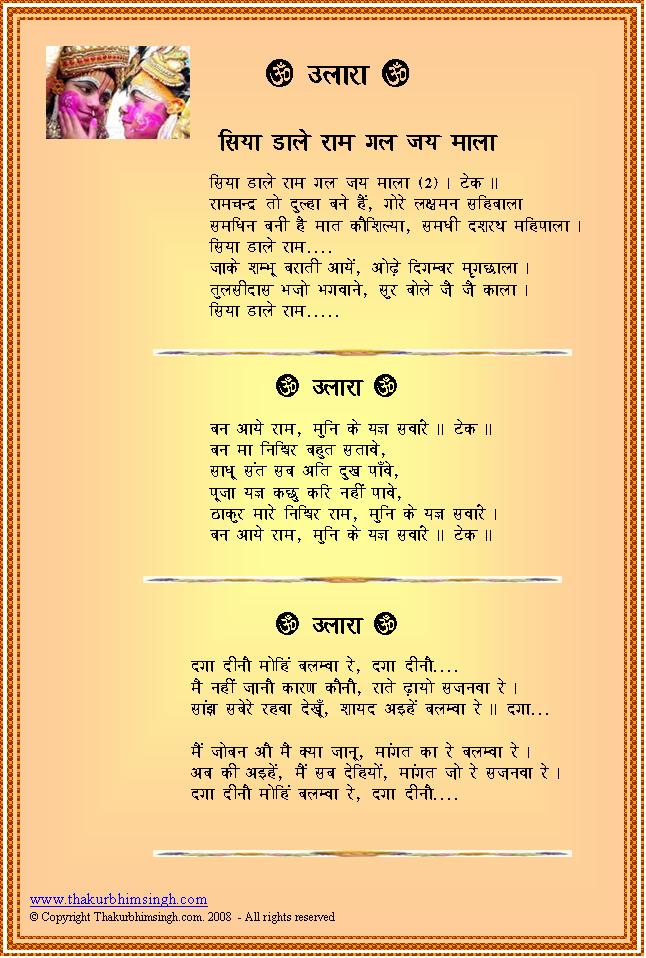 ॐ उलारा ॐ
सिया डाले राम गल जय माला
सिया डाले राम गल जय माला (2) । टेक ॥
रामचन्द्र तो दुल्हा बने हैं, गोरे लक्षमन सहिबाला
समधिन बनी है मात कौशिल्या, समधी दशरथ महिपाला ।
सिया डाले राम....
जाके शम्भू बराती आयें, ओढ़े दिगम्बर मृगछाला ।
तुलसीदास भजो भगवाने, सुर बोले जै जै काला ।
सिया डाले राम.....
ॐ उलारा ॐ
बन आये राम, मुनि के यज्ञ सवांरे ॥ टेक ॥
बन मा निश्चिर बहुत सतावे,
साधू संत सब अति दुख पाँवे,
पूजा यज्ञ कछु करि नहीं पावे,
ठाकुर मारे निश्चिर राम, मुनि के यज्ञ सवांरे ।
बन आये राम, मुनि के यज्ञ सवांरे ॥ टेक ॥
ॐ उलारा ॐ
दगा दीनौ मोहिं बलम्वा रे, दगा दीनौ....
मै नहीं जानौ कारण कौनौ, राते ढ़ायो सजनवा रे ।
सांझ सवेरे रहवा देखूँ, शायद अइहें बलम्वा रे ॥ दगा...
मैं जोबन औ मै क्या जानू, मांगत का रे बलम्वा रे ।
अब की अइहें, मैं सब देहियों, मांगत जो रे सजनवा रे ।
दगा दीनौ मोहिं बलम्वा रे, दगा दीनौ....
www.thakurbhimsingh.com
© Copyright Thakurbhimsingh.com. 2008 - All rights reserved